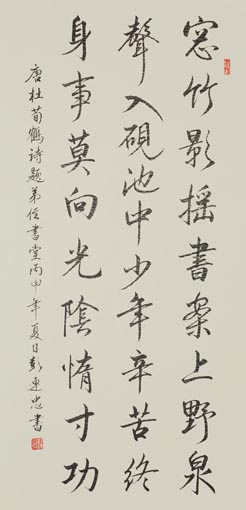 窓竹影摇書案上野泉
聲入硯池中少年辛苦終
身事莫向光陰惰寸功
唐杜荀鶴詩題弟侄書堂丙申年夏日彭連忠書